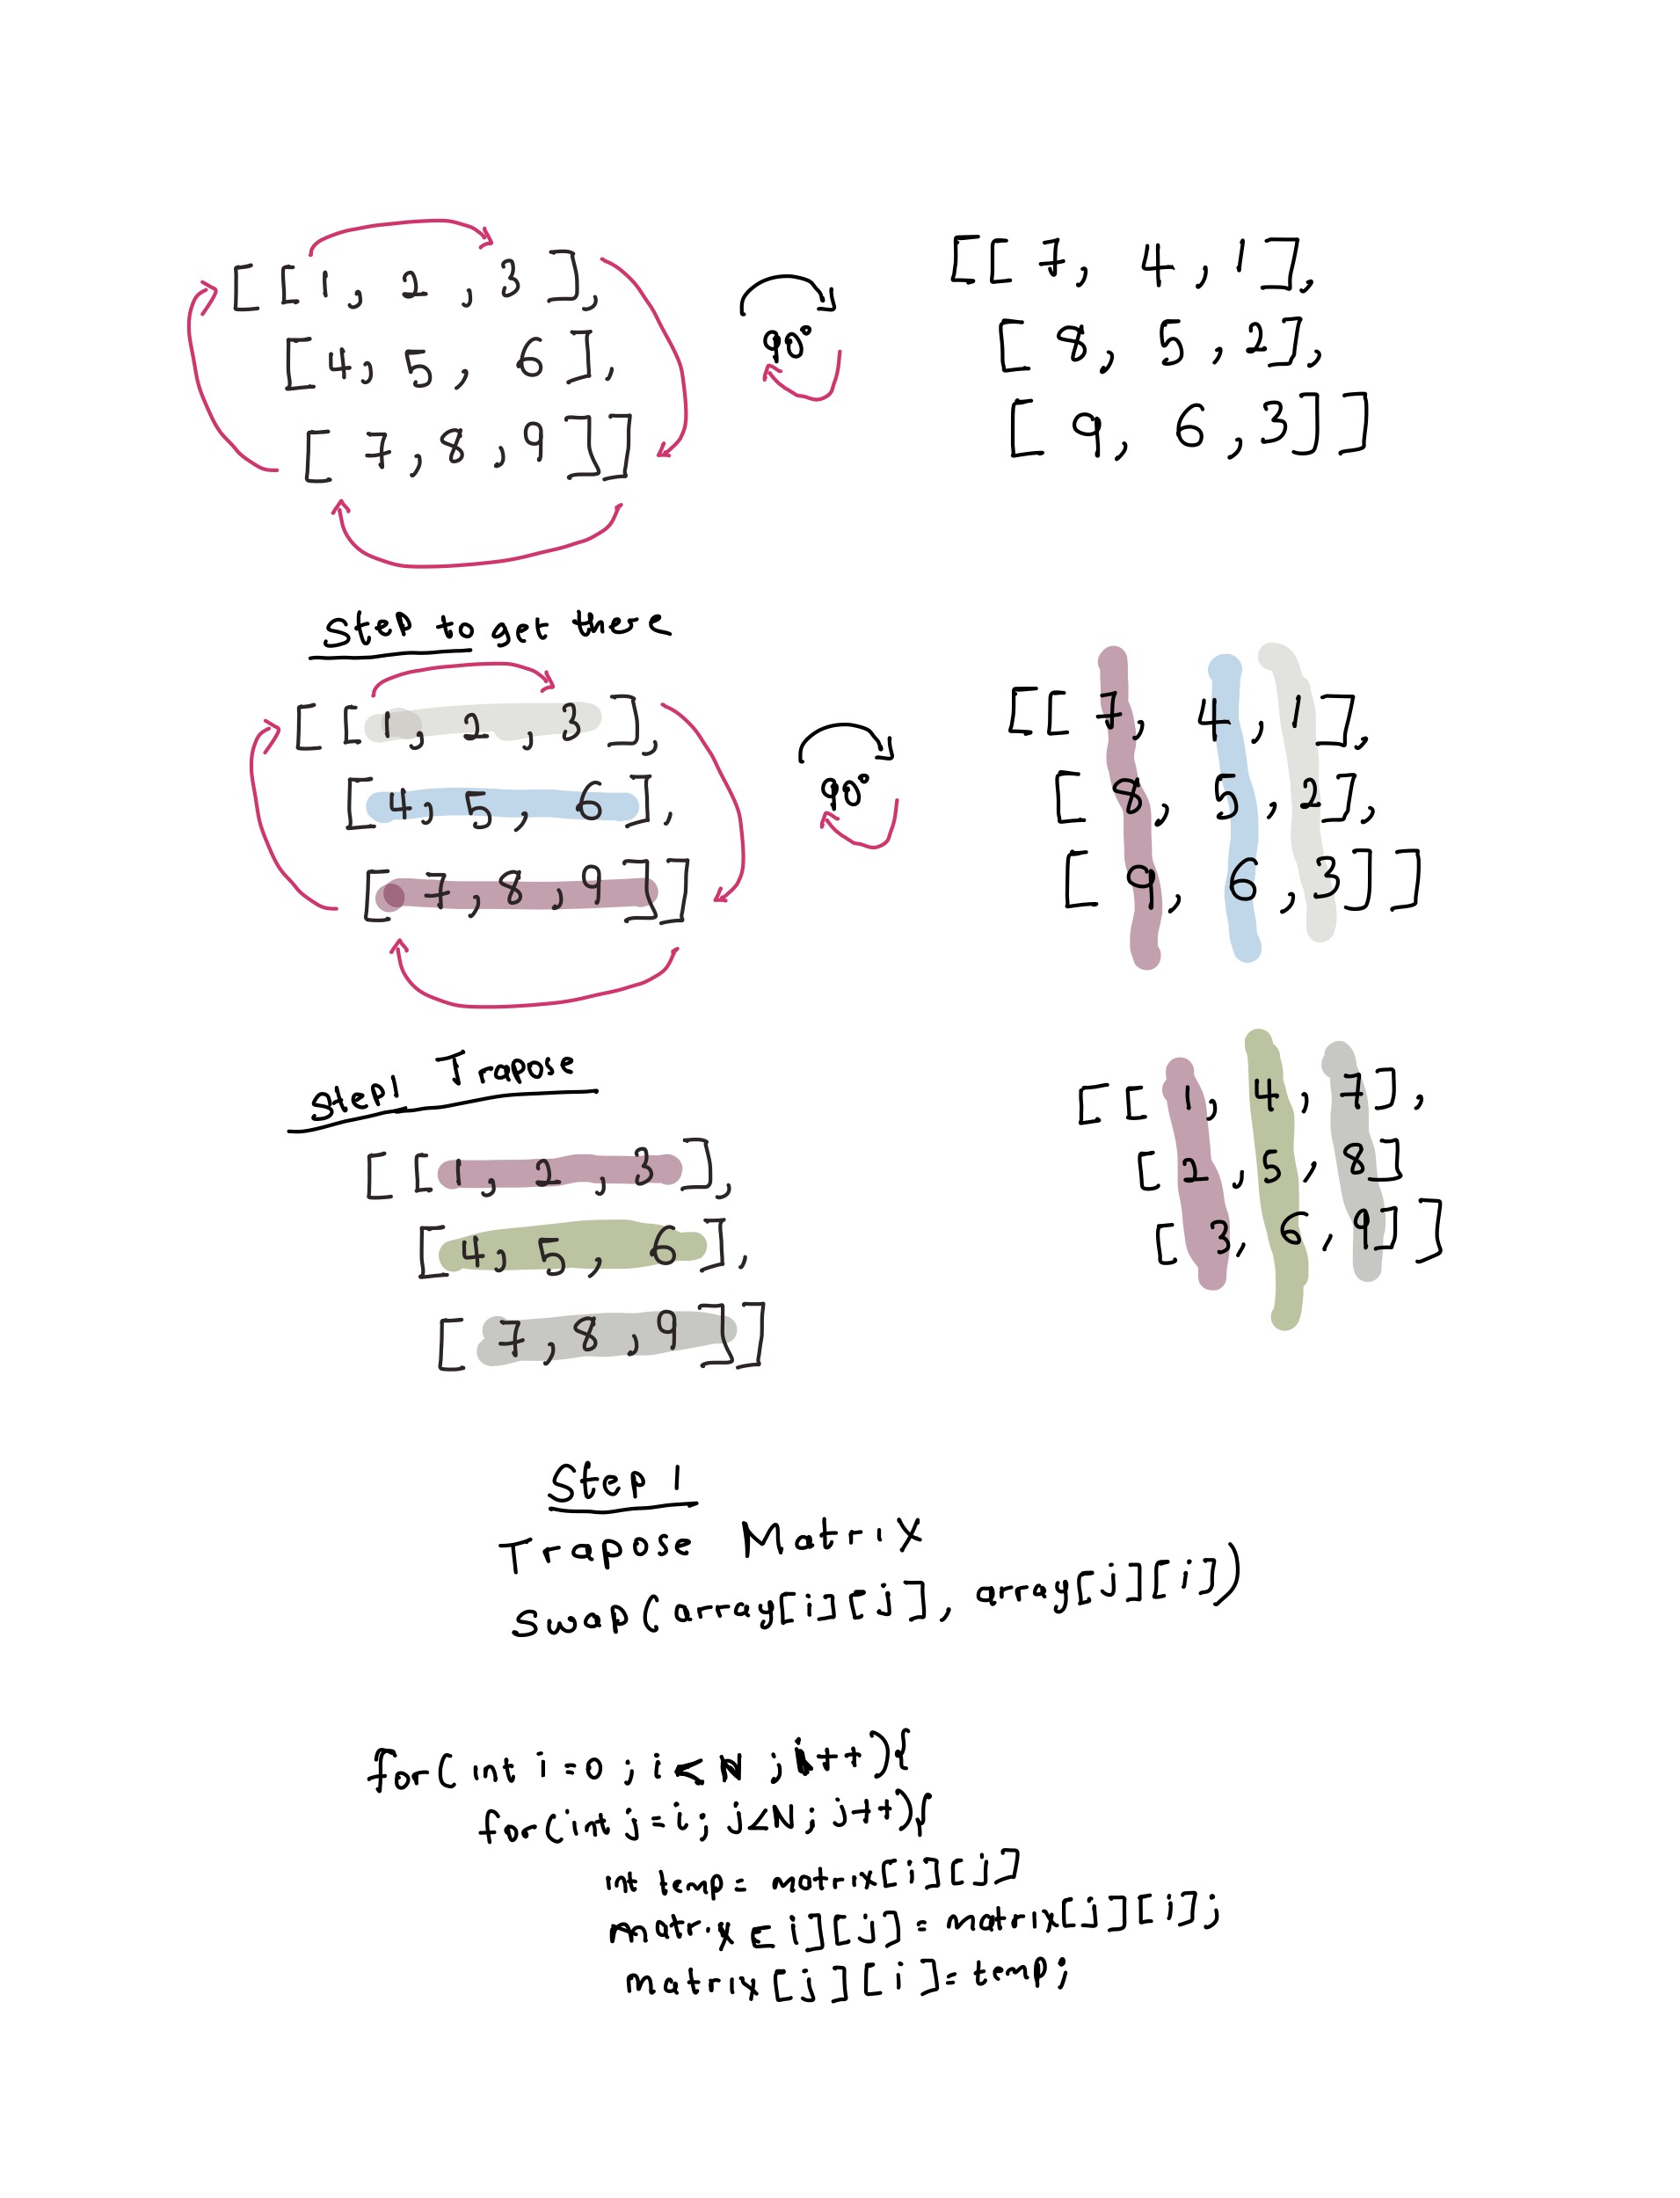 [[1, 2, 3],
[4, 5, 6],
[7, 8, 9]]
90°
[[7, 4, 1],
[8, 5, 2],
[9, 6, 3]]
Step to get there
[[1, 2, 3],
[4, 5, 6],
[7, 8, 9]]
90°
[[7, 4, 1],
[8, 5, 2],
[9, 6, 3]]
Step1 Trapose
[[1, 2, 3],
[4, 5, 6],
[7, 8, 9]]
[[1, 4, 7],
[2, 5, 8]
[3, 6, 9]]
Step 1
Trapose Matrix
Swap(array[i][j], array[j][i])
for(int i=0; i<N; i++){
for(int j=i; j<N; j++){
int temp= matrix[i][j]
matrix[i][j]= matrix[j][i];
matrix[j][i]= temp;